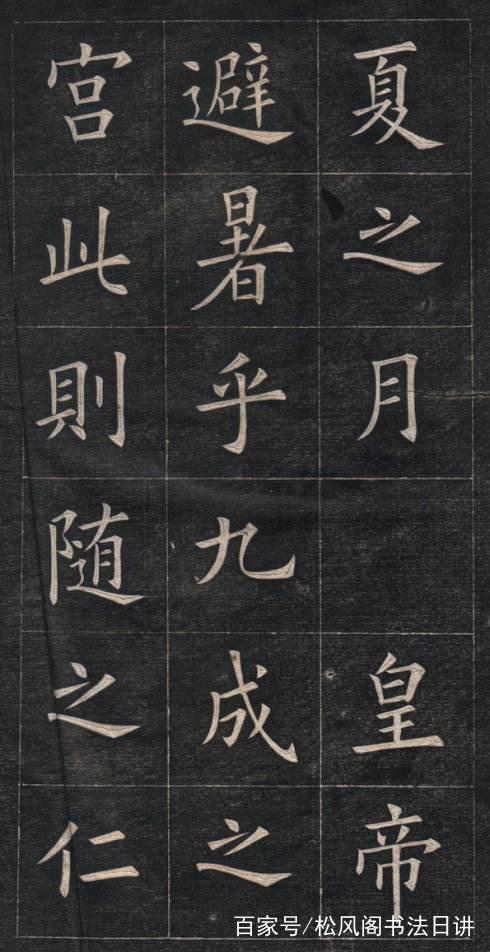 夏之月 皇帝
避暑乎九成之
宮此則随之仁
百家号/松风阁书法日讲